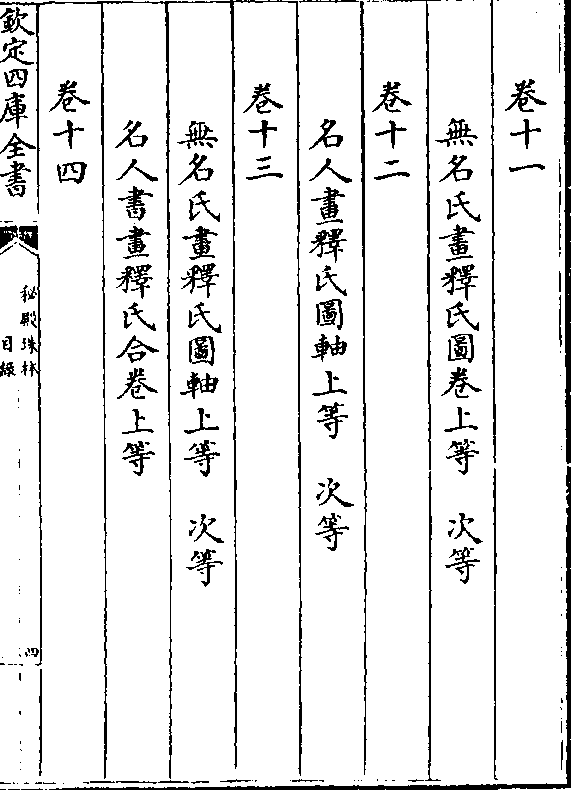 卷十一
無名氏畫釋氏圖卷上等　次等
卷十二
名人畫釋氏圖軸上等　次等
卷十三
無名氏畫釋氏圖軸上等　次等
名人書畫釋氏合卷上等
卷十四
欽定四庫全書
秘殿珠林
目錄
四